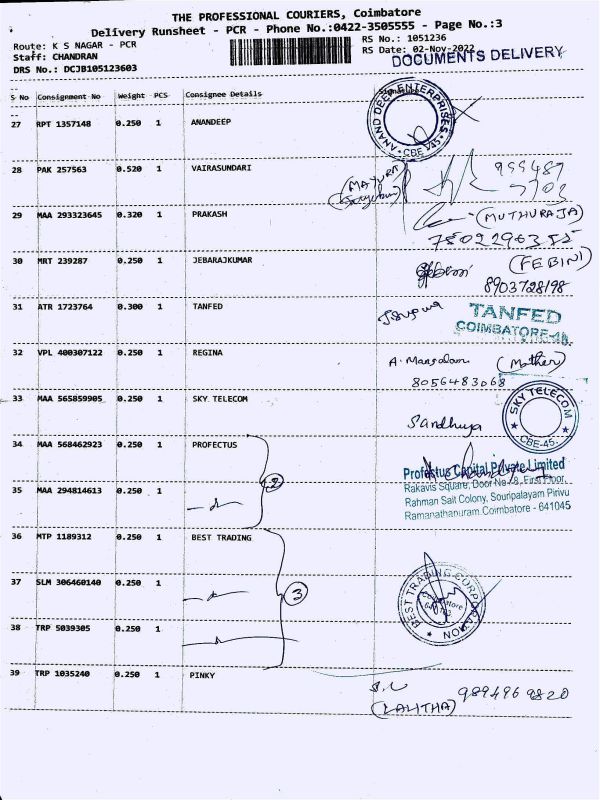 THE PROFESSIONAL COURIERS, Coimbatore
Delivery Runsheet - PCR - Phone No.:0422-3505555 - Page No.:3
Route: K S NAGAR - PCR
RS No.: 1051236
Staff: CHANDRAN
RS Date: 02-Nov-2022
DRS No.: DCJB105123603
DOCUMENTS DELIVERY
S No Consignment No Weight PCS Consignee Details
27 RPT 1357148 0.250 1 ANANDEEP
ANAND DEEP ENTERPRISES
CBE-45
28 PAK 257563 0.520 1 VAIRASUNDARI
999489
29 MAA 293323645 0.320 1 PRAKASH
(MUTHURAJA)
30 MRT 239287 0.250 1 JEBARAJKUMAR
(FEBINI)
8903728198
31 ATR 1723764 0.300 1 TANFED
TANFED
COIMBATORE
32 VPL 400307122 0.250 1 REGINA
(Mother)
8056483068
33 MAA 565859905 0.250 1 SKY TELECOM
Sandhya
SKY TELECOM
CBE-45.
34 MAA 568462923 0.250 1 PROFECTUS
2
Profectus Capital Private Limited
Rakavis Square, Door No 8, First Floor,
35 MAA 294814613 0.250 1
Rahman Sait Colony, Souripalayam Pirivu
Ramanathanuram Coimbatore - 641045
36 MTP 1189312 0.250 1 BEST TRADING
37 SLM 306460140 0.250 1
3
BEST TRADING CORPORATION
Coimbatore
38 TRP 5039305 0.250 1
39 TRP 1035240 0.250 1 PINKY
(LALITHA)
9894969820